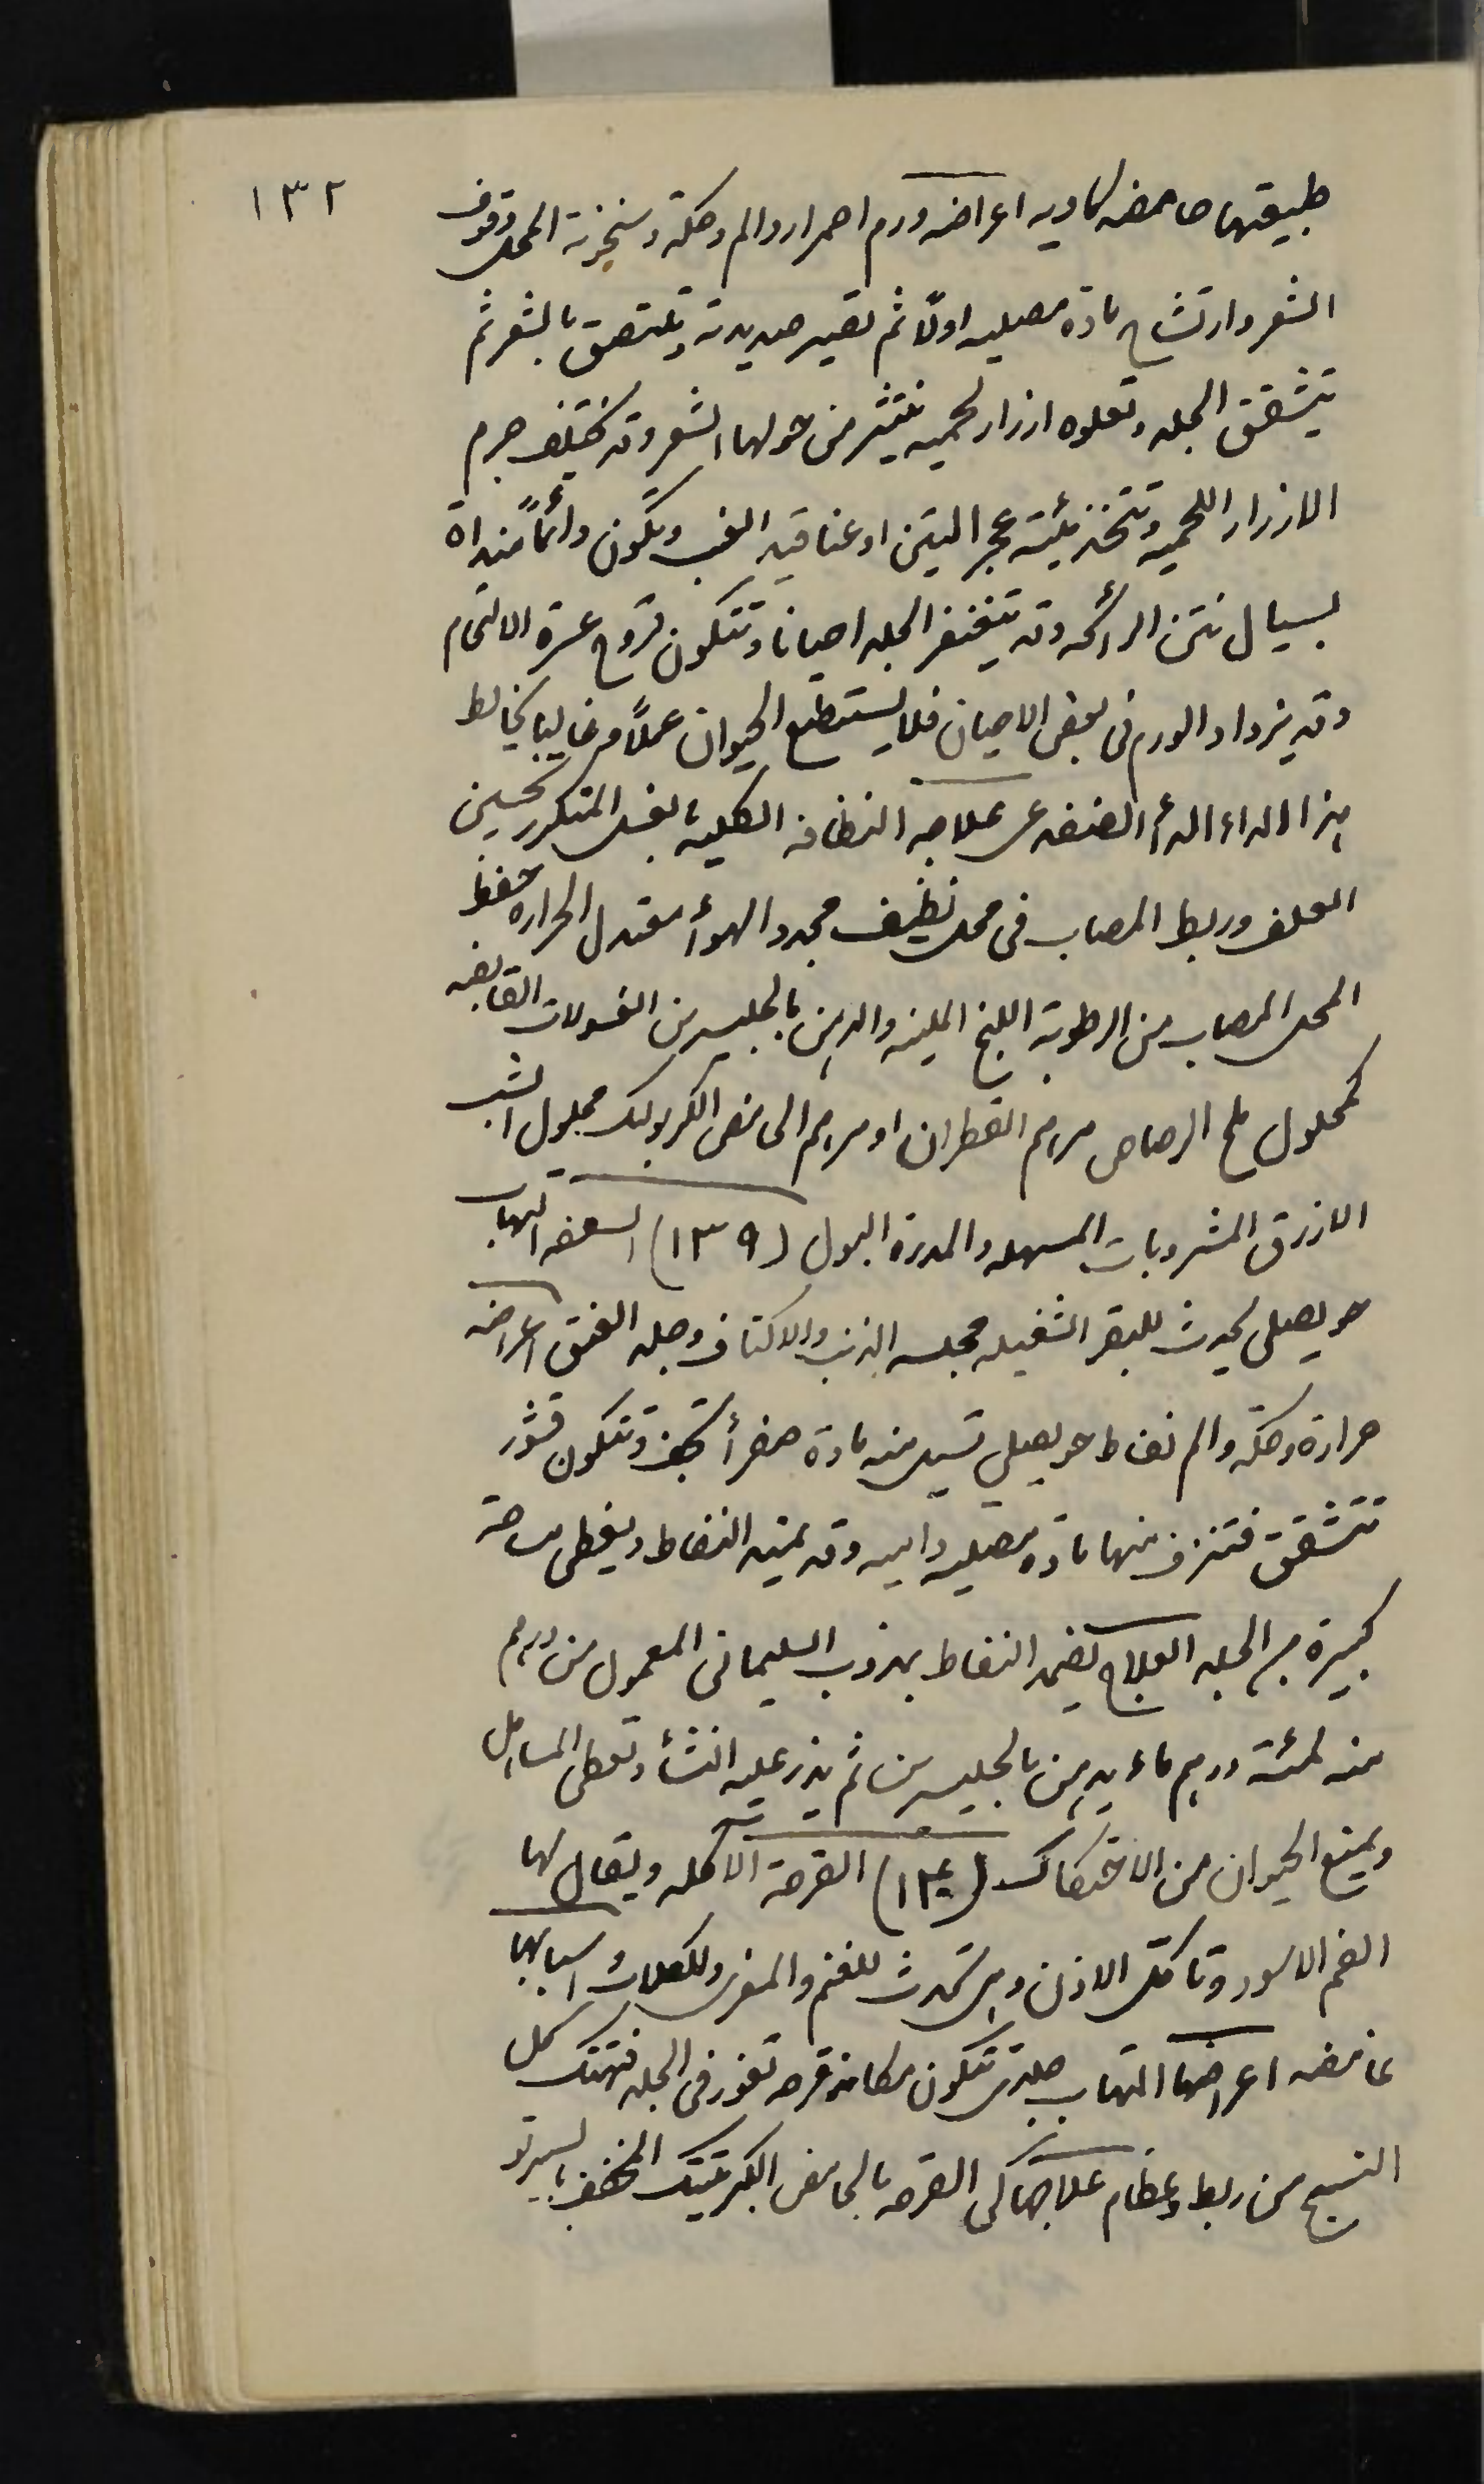 ١٣٢
طبيعتها حامضه كاويه اعراضه ورم احمرار والم وحكة وسخونة المحل وقوف
الشعر وارتشاح مادة مصليه اولاً ثم تصير صديدية وتلتصق بالشعر ثم
يتشقق الجلد وتعلوه ازرار لحميه ينتثر من حولها الشعر وقد يختلف جرم
الازرار اللحميه وتتخذ هيئة عجر التين او عناقيد العنب وتكون دائماً منداة
بسيال نتن الرائحه وقد يتغنغر الجلد احيانا وتتكون قروح عسرة الالتحام
وقد يزداد الورم في بعض الاحيان فلا يستطيع الحيوان عملاً وغالبا يخالط
هذا الداء الداء الضفدعي علاجه النظافه الكليه بالغسل المتكرر تحسين
العلف وربط المصاب في محل نظيف مجدد الهوأ معتدل الحراره حفظ
المحل المصاب من الرطوبة اللبخ الملينه والدهن بالجليسرين الغسولات القابضه
كمحلول ملح الرصاص مرهم القطران او مرهم الحامض الكربوليك محلول الشب
الازرق المشروبات المسهله والمدرة البول (١٣٩) السعفه التهاب
حويصلي يحدث للبقر الشغيله مجلسه الذنب والاكتاف وجلد العنق اعراضه
حرارة وحكة والم نفاط حويصلي تسيل منه مادة صفرأ تجف وتتكون قشور
تتشقق فتنزف منها مادة مصليه داميه وقد يمتد النفاط ويغطي مساحة
كبيرة من الجلد العلاج يضمد النفاط بمذوب السليماني المعمول من درهم
منه لمئة درهم ماء يدهن بالجليسرين ثم يذر عليه النشأ وتعطى المساهل
ويمنع الحيوان من الاحتكاك (١٤٠) القرحة الآكله ويقال لها
الفم الاسود وتاكل الاذن وهي تحدث للغنم والمعزى والكلاب اسبابها
غامضه اعراضها التهاب جلدي تتكون مكانه قرحه تغور في الجلد فتهتك كل
النسيج من ربط وعظام علاجها كي القرحه بالحامض الكبريتيك المخفف بالسبرتو